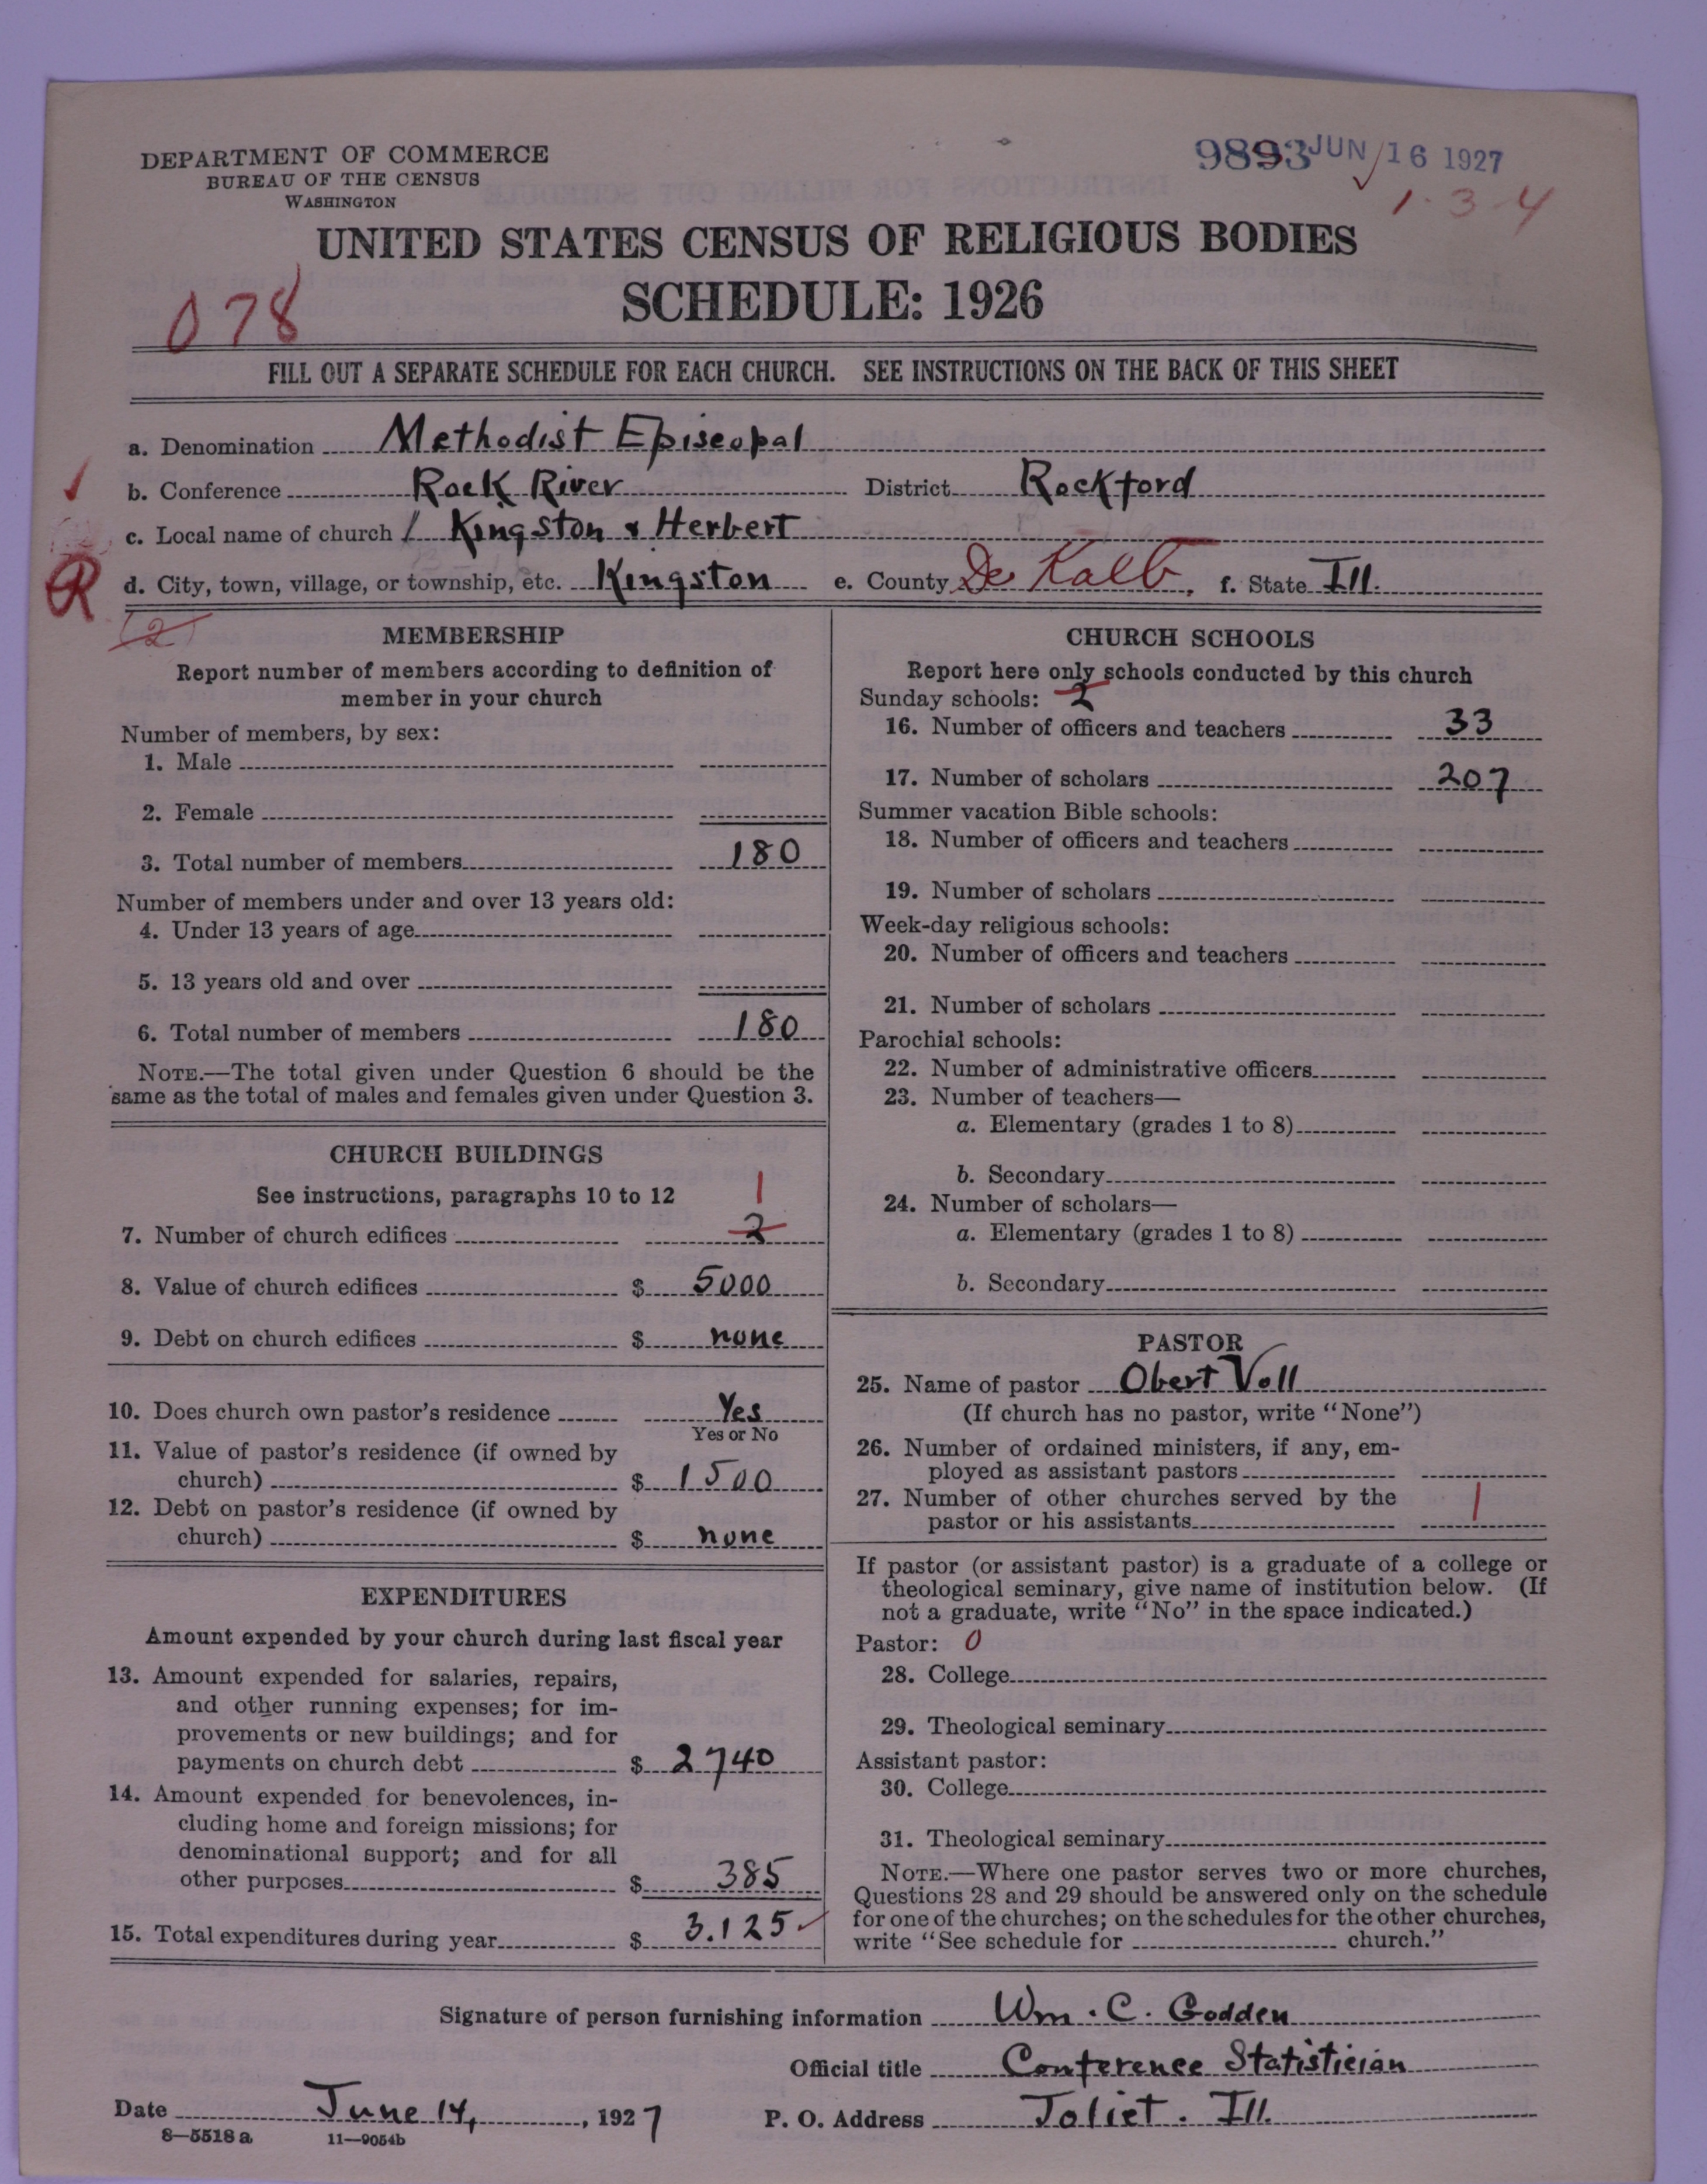 DEPARTMENT OF COMMERCE
BUREAU OF THE CENSUS
WASHINGTON
9893 JUN 16 1927
1-3-4
UNITED STATES CENSUS OF RELIGIOUS BODIES
SCHEDULE: 1926
078
FILL OUT A SEPARATE SCHEDULE FOR EACH CHURCH. SEE INSTRUCTIONS ON THE BACK OF THIS SHEET
a. Denomination Methodist Episcopal
b. Conference Rock River District Rockford
c. Local name of church 1 Kingston & Herbert
R d. City, town, village, or township, etc. Kingston e. County De Kalb, f. State Ill.
(2)
MEMBERSHIP
Report number of members according to definition of
member in your church
Number of members, by sex:
1. Male
2. Female
3. Total number of members 180
Number of members under and over 13 years old:
4. Under 13 years of age
5. 13 years old and over
6. Total number of members 180
NOTE.—The total given under Question 6 should be the
same as the total of males and females given under Question 3.
CHURCH BUILDINGS
See instructions, paragraphs 10 to 12 1
7. Number of church edifices 2
8. Value of church edifices $ 5000
9. Debt on church edifices $ none
10. Does church own pastor's residence Yes
Yes or No
11. Value of pastor's residence (if owned by
church) $ 1500
12. Debt on pastor's residence (if owned by
church) $ none
EXPENDITURES
Amount expended by your church during last fiscal year
13. Amount expended for salaries, repairs,
and other running expenses; for im-
provements or new buildings; and for
payments on church debt $ 2740
14. Amount expended for benevolences, in-
cluding home and foreign missions; for
denominational support; and for all
other purposes $ 385
15. Total expenditures during year $ 3.125
CHURCH SCHOOLS
Report here only schools conducted by this church
Sunday schools: 2
16. Number of officers and teachers 33
17. Number of scholars 207
Summer vacation Bible schools:
18. Number of officers and teachers
19. Number of scholars
Week-day religious schools:
20. Number of officers and teachers
21. Number of scholars
Parochial schools:
22. Number of administrative officers
23. Number of teachers—
a. Elementary (grades 1 to 8)
b. Secondary
24. Number of scholars—
a. Elementary (grades 1 to 8)
b. Secondary
PASTOR
25. Name of pastor Obert Voll
(If church has no pastor, write "None")
26. Number of ordained ministers, if any, em-
ployed as assistant pastors
27. Number of other churches served by the
pastor or his assistants 1
If pastor (or assistant pastor) is a graduate of a college or
theological seminary, give name of institution below. (If
not a graduate, write "No" in the space indicated.)
Pastor: 0
28. College
29. Theological seminary
Assistant pastor:
30. College
31. Theological seminary
NOTE.—Where one pastor serves two or more churches,
Questions 28 and 29 should be answered only on the schedule
for one of the churches; on the schedules for the other churches,
write "See schedule for church."
Signature of person furnishing information Wm. C. Godden
Official title Conference Statistician
Date June 14, 1927 P. O. Address Joliet. Ill.
8—5518 a 11—9054b